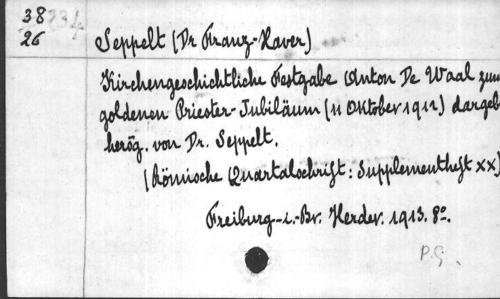 38
26
Seppelt (Dr Franz-Xaver)
Kirchengeschichtliche Festgabe Anton De Waal zum
goldenen Priester-Jubiläum (11 Oktober 1912) dargeb
herög. von Dr. Seppelt.
(Römische Quartalschrift: Supplementheft XX)
Freiburg-i.-Br. Herder. 1913. 8º.
P.G.